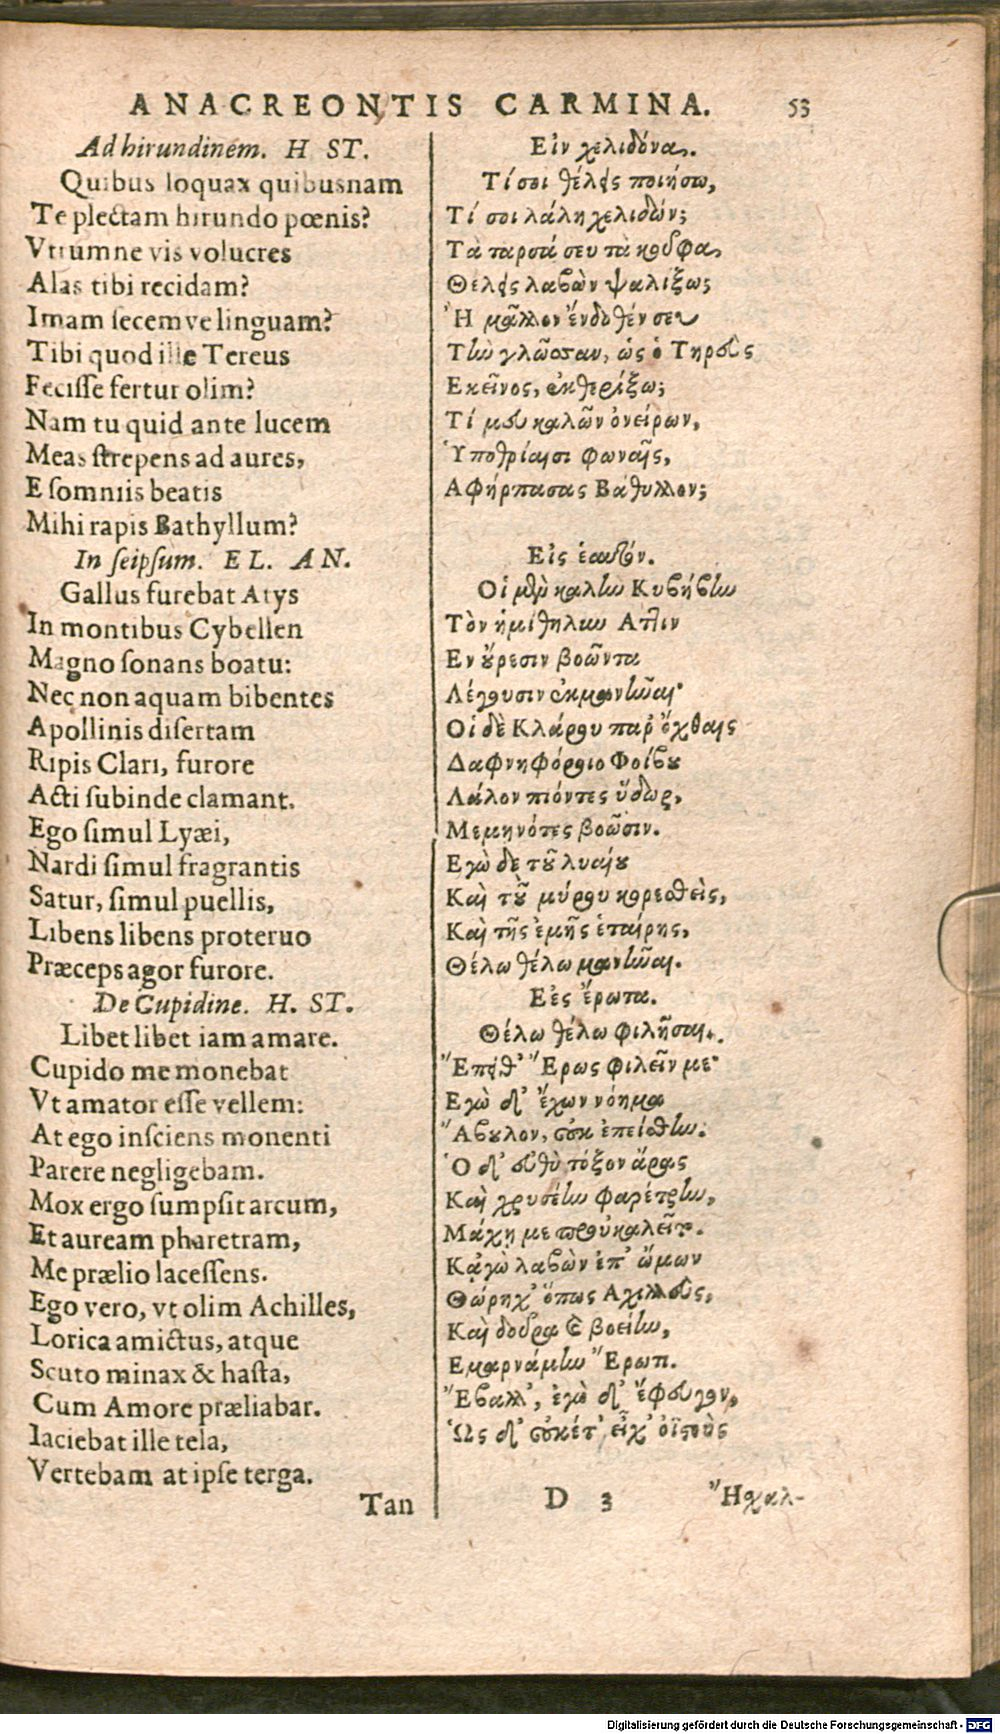 ANACREONTIS CARMINA. 53
Ad hirundinem. H ST.
Quibus loquax quibusnam
Te plectam hirundo pœnis?
Vtrumne vis volucres
Alas tibi recidam?
Imam ſecemve linguam?
Tibi quod ille Tereus
Feciſſe fertur olim?
Nam tu quid ante lucem
Meas ſtrepens ad aures,
E ſomniis beatis
Mihi rapis Bathyllum?
In ſeipſum. EL. AN.
Gallus furebat Atys
In montibus Cybellen
Magno ſonans boatu:
Nec non aquam bibentes
Apollinis diſertam
Ripis Clari, furore
Acti ſubinde clamant.
Ego ſimul Lyæi,
Nardi ſimul fragrantis
Satur, ſimul puellis,
Libens libens proteruo
Præceps agor furore.
De Cupidine. H. ST.
Libet libet iam amare.
Cupido me monebat
Vt amator eſſe vellem:
At ego inſciens monenti
Parere negligebam.
Mox ergo ſumpſit arcum,
Et auream pharetram,
Me prælio laceſſens.
Ego vero, vt olim Achilles,
Lorica amictus, atque
Scuto minax & haſta,
Cum Amore præliabar.
Iaciebat ille tela,
Vertebam at ipſe terga.
Tan
Εἰν χελιδόνα.
Τί σοι θέλεις ποιήσω,
Τί σοι λάλη χελιδών;
Τὰ ταρσά σευ τὰ κοῦφα
Θέλεις λαβὼν ψαλίξω;
Ἢ μᾶλλον ἔνδοθέν σευ
Τὴν γλῶσσαν, ὡς ὁ Τηρεὺς
Εκεῖνος, ἐκθερίξω;
Τί μευ καλῶν ὀνείρων,
Ὑποθρίαισι φωναῖς,
Αφήρπασας Βάθυλλον;
Εἰς ἑαυτόν.
Οἱ μὲν καλὴν Κυβήβην
Τὸν ἡμίθηλυν Αττιν
Εν οὔρεσιν βοῶντα
Λέγουσιν ἐκμανῆναι·
Οἱ δὲ Κλάρου παρ' ὄχθαις
Δαφνηφόροιο Φοίβου
Λάλον πιόντες ὕδωρ,
Μεμηνότες βοῶσιν.
Εγὼ δὲ τοῦ λυαίου
Καὶ τοῦ μύρου κορεσθεὶς,
Καὶ τῆς ἐμῆς ἑταίρης,
Θέλω θέλω μανῆναι.
Εἐς ἔρωτα.
Θέλω θέλω φιλῆσαι.
Ἔπειθ' Ἔρως φιλεῖν με·
Εγὼ δ' ἔχων νόημα
Ἄβουλον, οὐκ ἐπείσθην.
Ὁ δ' εὐθὺ τόξον ἄρας
Καὶ χρυσέην φαρέτρην,
Μάχῃ με προὐκαλεῖτο.
Κᾀγὼ λαβὼν ἐπ' ὤμων
Θώρηχ' ὅπως Αχιλλεὺς,
Καὶ δοῦρα καὶ βοείην,
Εμαρνάμην Ἔρωτι.
Ἔβαλλ', ἐγὼ δ' ἔφευγον,
Ὡς δ' οὐκέτ' εἶχ' ὀϊστοὺς
D 3 Ἤσχαλ-
Digitalisierung gefördert durch die Deutsche Forschungsgemeinschaft - DFG